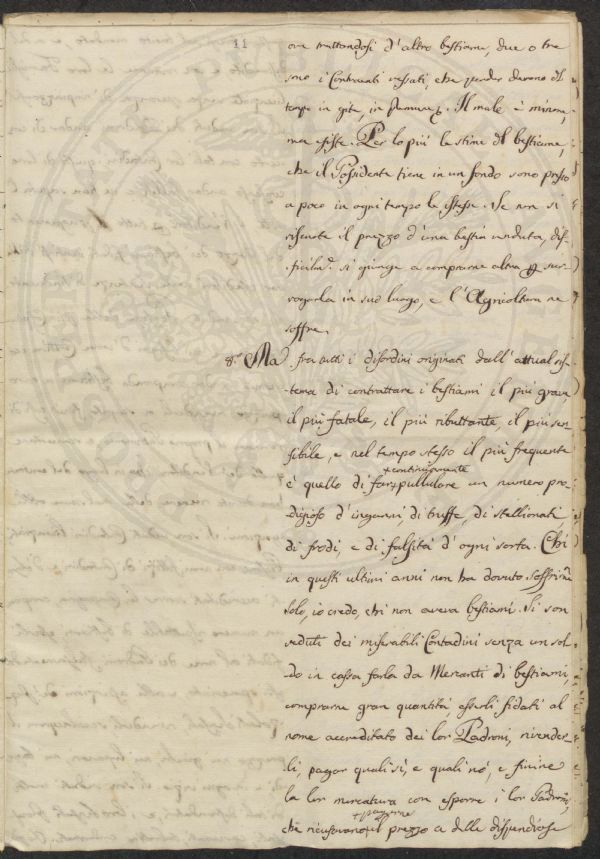 11
ora trattandosi d'altro bestiame, due o tre
sono i Contraenti vessati, che perder devono il
tempo in gite, in premure &. Il male è minore,
ma esiste. Per lo più le stime del bestiame,
che il Possidente tiene in un fondo sono presso
a poco in ogni tempo le istesse. Se non si
riscuote il prezzo d'una bestia venduta, dif-
ficilm.e si giunge a comprarne altra per sur-
rogarla in suo luogo, e l'Agricoltura ne
soffre.
8.o Ma fra tutti i disordini originati dall'attual sis-
tema di contrattare i bestiami il più grave,
il più fatale, il più ributtante, il più sen-
sibile, e nel tempo stesso il più frequente
+ continuamente
è quello di far + pullulare un numero pro-
digioso d'inganni, di truffe, di stellionati,
di frodi, e di falsità d'ogni sorta. Chi
in questi ultimi anni non ha dovuto soffrirne?
Solo, io credo, chi non aveva bestiami. Si son
veduti dei miserabili Contadini senza un sol-
do in cassa farla da Mercanti di bestiami,
comprarne gran quantità esserli fidati al
nome accreditato dei lor Padroni, rivender-
li, pagar quali sì, e quali nò, e finire
la lor mercatura con esporre i lor Padroni,
+ pagarne
che ricusavano + il prezzo a delle dispendiose